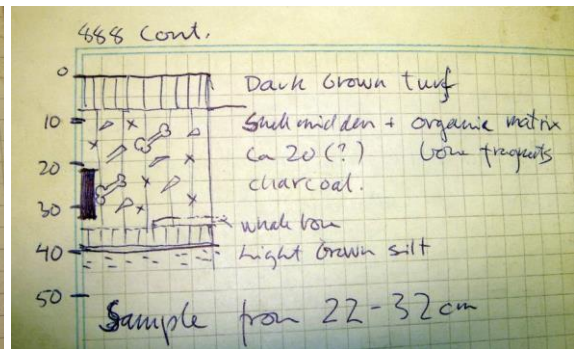 888 Cont.
0
Dark brown turf
10
Shell midden + organic matrix
ca 20 (?) bone fragments
20
charcoal.
30
whale bone
40
Light brown silt
50
Sample from 22-32 cm